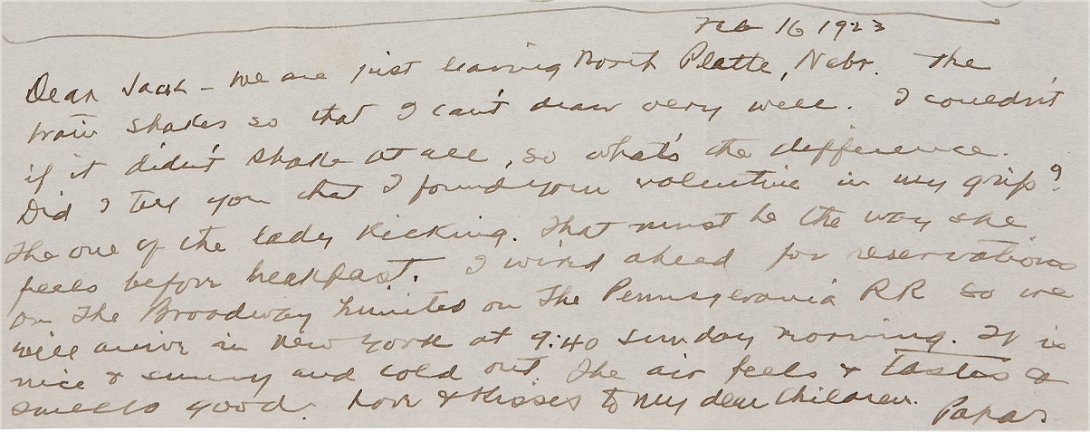 Feb 16 1923
Dear Jack - We are just leaving North Platte, Nebr. The
train shakes so that I can't draw very well. I couldn't
if it didn't shake at all, so what's the difference.
Did I tell you that I found your valentine in my grip?
The one of the lady kicking. That must be the way she
feels before breakfast. I wired ahead for reservations
on the Broadway Limited on the Pennsylvania RR so we
will arrive in New York at 9:40 Sunday morning. It is
nice & sunny and cold out. The air feels & tastes &
smells good. Love & Kisses to my dear children. Papa